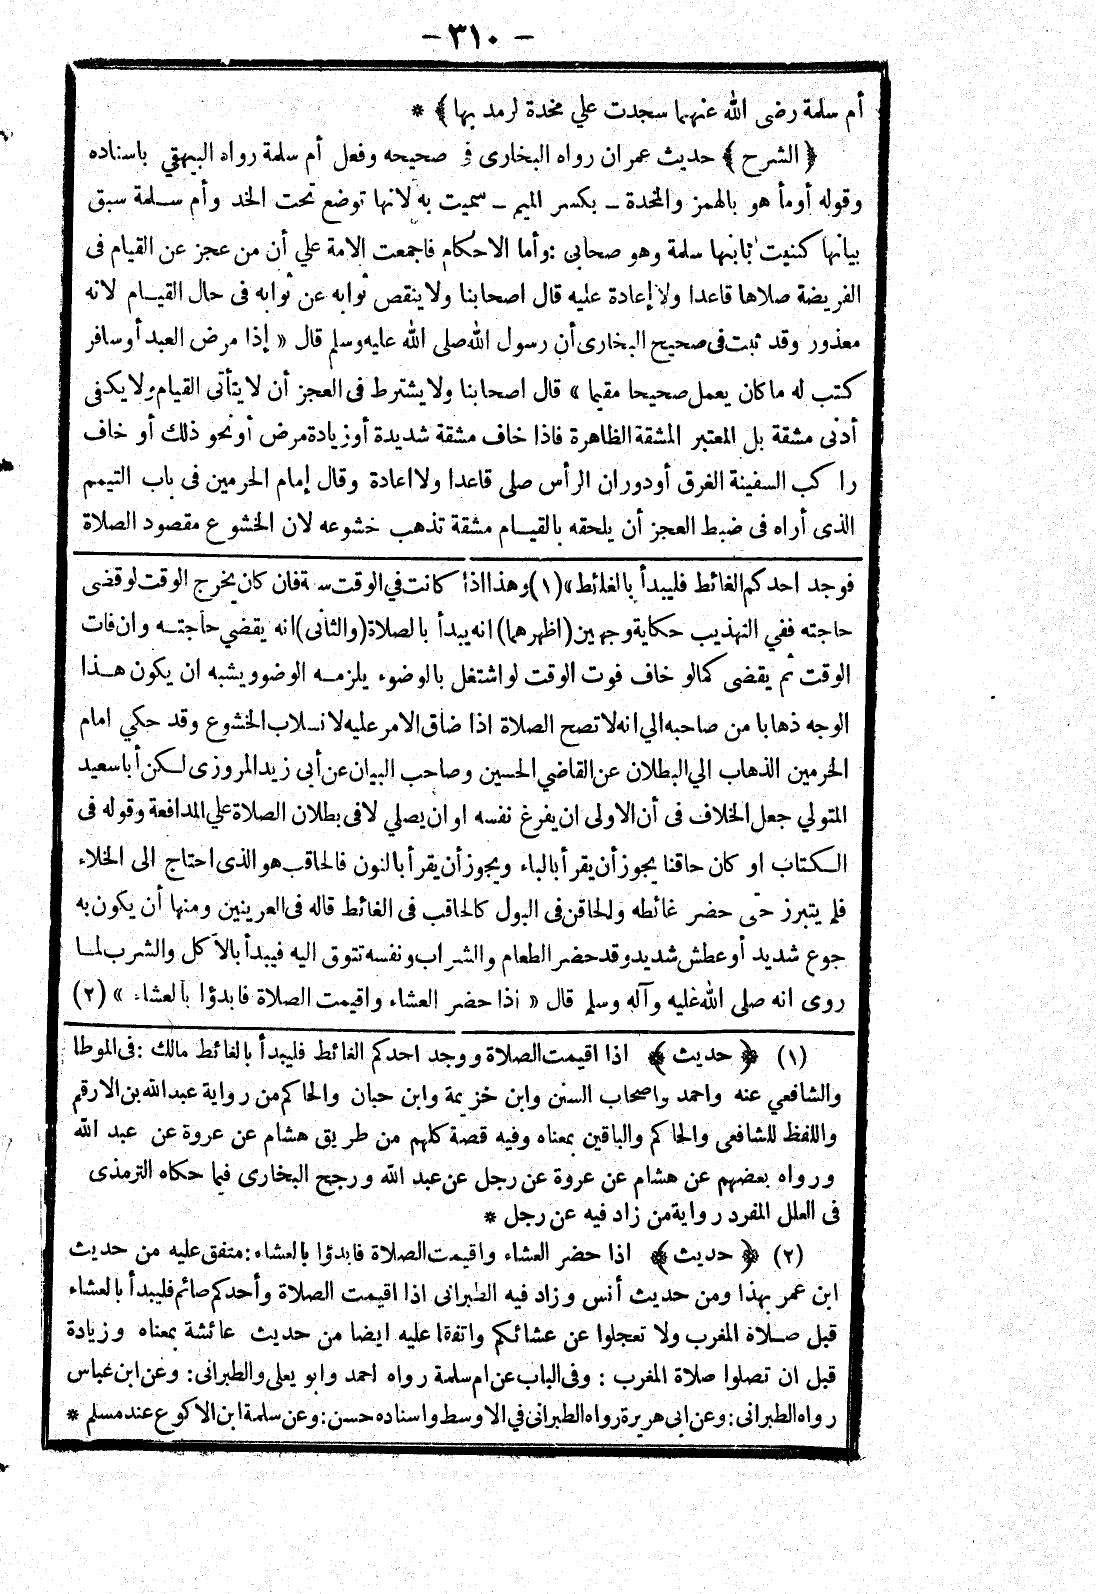 — ٣١٠ —
أم سلمة رضى الله عنهما سجدت علي مخدة لرمد بها ﴾ *
﴿ الشرح ﴾ حديث عمران رواه البخارى فى صحيحه وفعل أم سلمة رواه البيهقي باسناده
وقوله أومأ هو بالهمز والمخدة ـ بكسر الميم ـ سميت به لانها توضع تحت الخد وأم سـلمة سبق
بيانها كنيت بابنها سلمة وهو صحابى : وأما الاحكام فاجمعت الامة علي أن من عجز عن القيام فى
الفريضة صلاها قاعدا ولا إعادة عليه قال اصحابنا ولا ينقص ثوابه عن ثوابه فى حال القيـام لانه
معذور وقد ثبت فى صحيح البخارى أن رسول الله صلى الله عليه وسلم قال « إذا مرض العبد أو سافر
كتب له ما كان يعمل صحيحا مقيما » قال اصحابنا ولا يشترط فى العجز أن لا يتأتى القيام ولا يكفى
أدنى مشقة بل المعتبر المشقة الظاهرة فاذا خاف مشقة شديدة أو زيادة مرض أو نحو ذلك أو خاف
راكب السفينة الغرق أو دوران الرأس صلى قاعدا ولا اعادة وقال إمام الحرمين فى باب التيمم
الذى أراه فى ضبط العجز أن يلحقه بالقيـام مشقة تذهب خشوعه لان الخشوع مقصود الصلاة
فوجد احدكم الغائط فليبدأ بالغائط » (١) وهذا اذا كانت في الوقت سعة فان كان يخرج الوقت لو قضى
حاجته ففي التهذيب حكاية وجهين (اظهرهما) انه يبدأ بالصلاة (والثانى) انه يقضي حاجتـه وان فات
الوقت ثم يقضى كما لو خاف فوت الوقت لو اشتغل بالوضوء يلزمـه الوضوء ويشبه ان يكون هـذا
الوجه ذهابا من صاحبه الي انه لا تصح الصلاة اذا ضاق الامر عليه لانسلاب الخشوع وقد حكي امام
الحرمين الذهاب الي البطلان عن القاضي الحسين وصاحب البيان عن أبى زيد المروزى لـكن أبا سعيد
المتولي جعل الخلاف فى أن الاولى ان يفرغ نفسه او ان يصلي لا فى بطلان الصلاة علي المدافعة وقوله فى
الـكتاب او كان حاقنا يجوز أن يقرأ بالباء ويجوز أن يقرأ بالنون فالحاقب هو الذى احتاج الى الخلاء
فلم يتبرز حتى حضر غائطه والحاقن فى البول كالحاقب فى الغائط قاله فى العريبين ومنها أن يكون به
جوع شديد أو عطش شديد وقد حضر الطعام والشراب ونفسه تتوق اليه فيبدأ بالأكل والشرب لمـا
روى انه صلى الله عليه وآله وسلم قال « اذا حضر العشاء واقيمت الصلاة فابدؤا بالعشاء » (٢)
(١) ﴿ حديث ﴾ اذا اقيمت الصلاة ووجد احدكم الغائط فليبدأ بالغائط مالك : فى الموطا
والشافعي عنه واحمد واصحاب السنن وابن خزيمة وابن حبان والحاكم من رواية عبد الله بن الارقم
واللفظ للشافعى والحاكم والباقين بمعناه وفيه قصة كلهم من طريق هشام عن عروة عن عبد الله
ورواه بعضهم عن هشام عن عروة عن رجل عن عبد الله ورجح البخارى فيما حكاه الترمذى
فى العلل المفرد رواية من زاد فيه عن رجل *
(٢) ﴿ حديث ﴾ اذا حضر العشاء واقيمت الصلاة فابدؤا بالعشاء : متفق عليه من حديث
ابن عمر بهذا ومن حديث أنس وزاد فيه الطبرانى اذا اقيمت الصلاة وأحدكم صائم فليبدأ بالعشاء
قبل صـلاة المغرب ولا تعجلوا عن عشائكم واتفقا عليه ايضا من حديث عائشة بمعناه وزيادة
قبل ان تصلوا صلاة المغرب : وفى الباب عن ام سلمة رواه احمد وابو يعلى والطبرانى : وعن ابن عباس
رواه الطبرانى : وعن ابى هريرة رواه الطبرانى في الاوسط واسناده حسن : وعن سلمة ابن الاكوع عند مسلم *